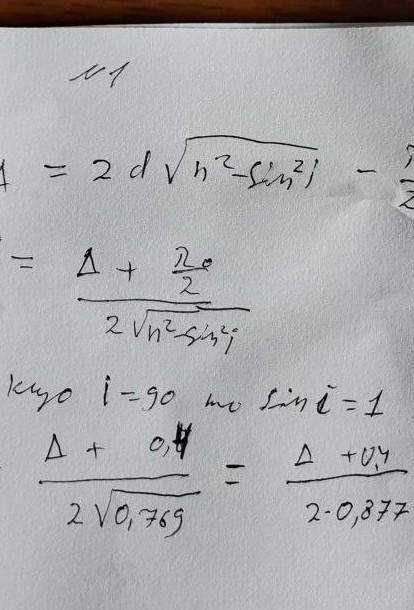 N1
Δ = 2d√(n²-sin²i) - λ/2
= (Δ + λ₀/2) / (2√(n²-sin²i))
i=90 то sin i=1
(Δ + 0,4) / (2√0,769) = (Δ + 0,4) / (2·0,877)